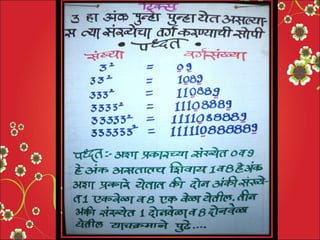 ट्रिक्स
3 हा अंक पुन्हा पुन्हा येत असल्या-
स त्या संख्येचा वर्ग करण्याची सोपी
पध्दत
संख्या वर्गसंख्या
3² = 09
33² = 1089
333² = 110889
3333² = 11108889
33333² = 1111088889
333333² = 111110888889
पध्दत :- अशा प्रकारच्या संख्येत 0 व 9
हे अंक असतातच शिवाय 1 व 8 हे अंक
अशा प्रकारे येतात की दोन अंकी संख्ये-
त 1 एकवेळा व 8 एक वेळा येतील. तीन
अंकी संख्येत 1 दोनवेळा व 8 दोनवेळा
येतील याचक्रमाने पुढे....